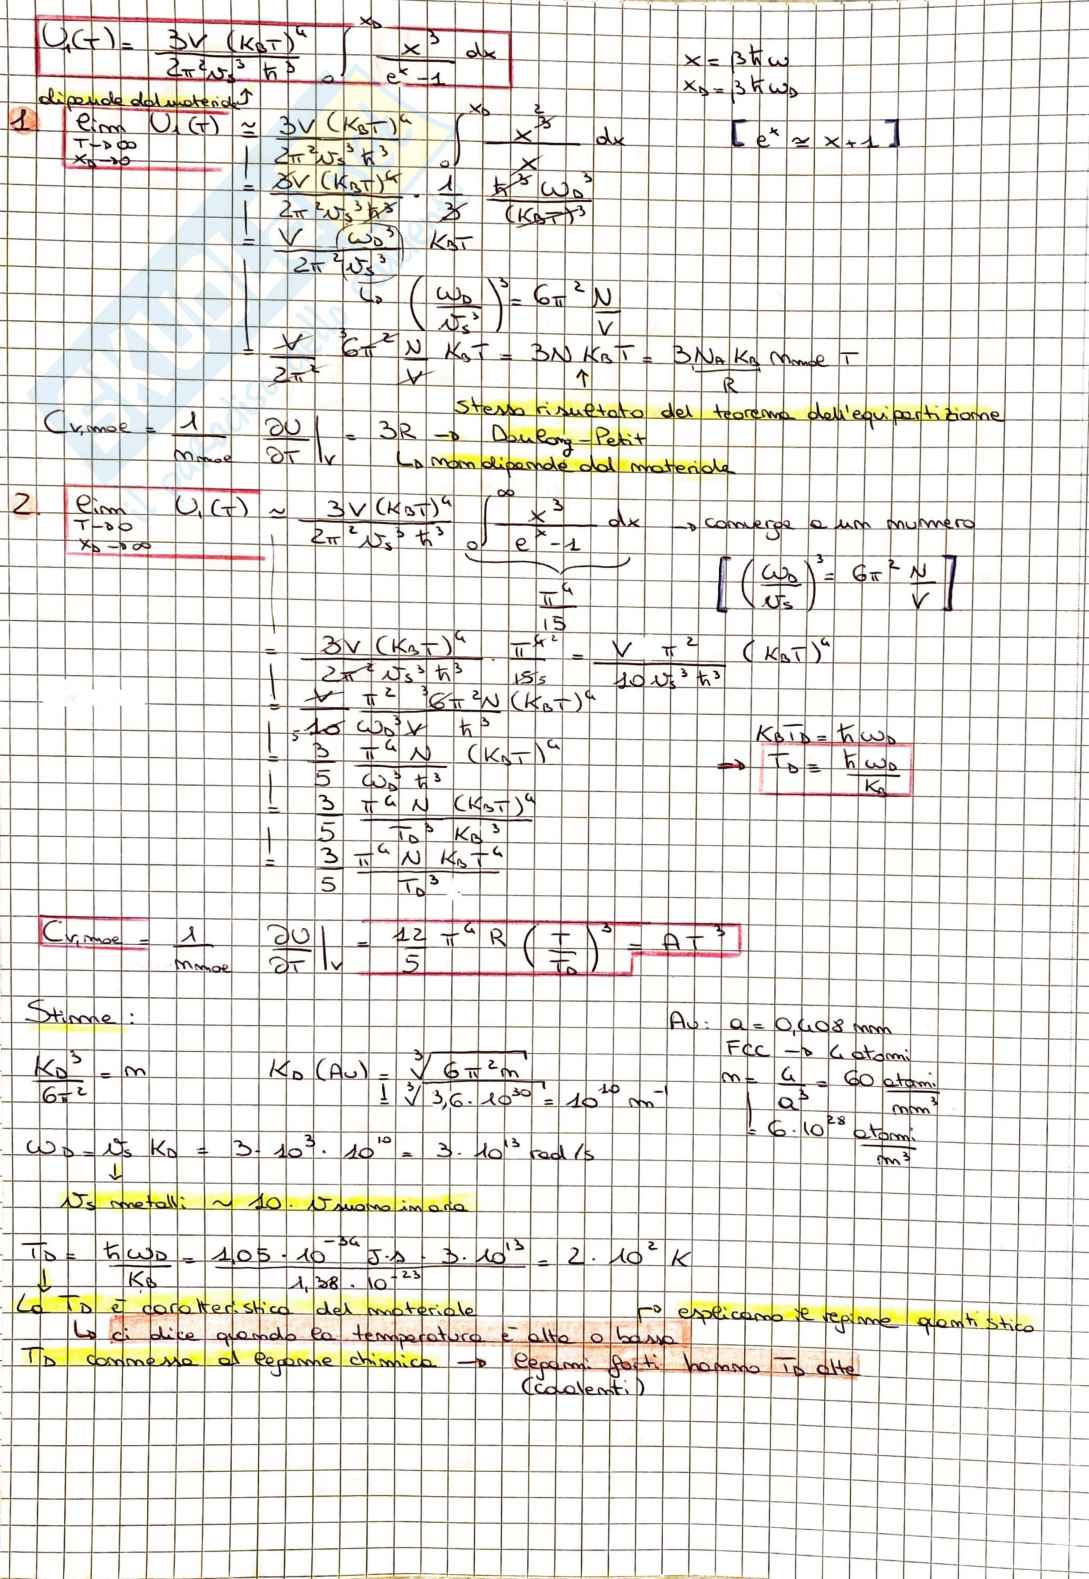 U₁(T) = 3V (K_BT)⁴ / 2π² v_s³ ħ³ ∫₀^{x_D} x³ / (eˣ - 1) dx
x = βħω
x_D = βħω_D
dipende dal materiale ↑
1. lim T→∞ x_D→0 U₁(T) ≃ 3V (K_BT)⁴ / 2π² v_s³ ħ³ ∫₀^{x_D} x³ ² / x dx [eˣ ≃ x+1]
= 3V (K_BT)⁴ / 2π² v_s³ ħ³ · 1/3 ħ³ ω_D³ / (K_BT)³
= V / 2π² (ω_D³ / v_s³) K_BT
↳ (ω_D / v_s³)³ = 6π² N/V
= V / 2π² ³6π² N/V K_BT = 3N K_BT = 3 N_A K_B n_mole T
↑ R
stesso risultato del teorema dell'equipartizione
C_v,mole = 1/n_mole ∂U/∂T |_V = 3R → Doulong-Petit
↳ non dipende dal materiale
2. lim T→0 x_D→∞ U₁(T) ≃ 3V (K_BT)⁴ / 2π² v_s³ ħ³ ∫₀^∞ x³ / (eˣ - 1) dx → converge a un numero
π⁴ / 15
[(ω_D / v_s)³ = 6π² N/V]
= 3V (K_BT)⁴ / 2π² v_s³ ħ³ · π⁴ ² / 15 5 = V π² / 10 v_s³ ħ³ (K_BT)⁴
= V π² ³6π² N (K_BT)⁴ / 5 10 ω_D³ V ħ³
K_BT_D = ħω_D
= 3/5 π⁴ N / ω_D³ ħ³ (K_BT)⁴
⇒ T_D = ħω_D / K_B
= 3/5 π⁴ N (K_BT)⁴ / T_D³ K_B³
= 3/5 π⁴ N K_B T⁴ / T_D³
C_v,mole = 1/n_mole ∂U/∂T |_V = 12/5 π⁴ R (T/T_D)³ = AT³
Stime:
Au: a = 0,408 nm
FCC → 4 atomi
K_D³ / 6π² = n
K_D (Au) = ∛(6π² n)
n = 4 / a³ = 60 atomi / nm³
= ∛(3,6 · 10³⁰) = 10¹⁰ m⁻¹
= 6 · 10²⁸ atomi / m³
ω_D = v_s K_D = 3 · 10³ · 10¹⁰ = 3 · 10¹³ rad/s
↓
v_s metalli ~ 10 · v suono in aria
T_D = ħω_D / K_B = 1,05 · 10⁻³⁴ J·s · 3 · 10¹³ / 1,38 · 10⁻²³ = 2 · 10² K
↓
La T_D è caratteristica del materiale
↱ esplicano il regime quantistico
↳ ci dice quando la temperatura è alta o bassa
T_D connessa al legame chimico → legami forti hanno T_D alte
(covalenti)